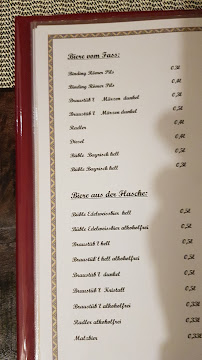 Biere vom Fass:
Binding Römer Pils 0,3l
Binding Römer Pils 0,4l
Braustüb'l Märzen dunkel 0,3l
Braustüb'l Märzen dunkel 0,4l
Radler 0,4l
Diesel 0,4l
Bayrisch hell 0,3l
Bayrisch hell 0,5l
Biere aus der Flasche:
Edelweissbier hell 0,5l
Edelweissbier alkoholfrei 0,5l
Braustüb'l hell 0,5l
Braustüb'l hell alkoholfrei 0,5l
Braustüb'l dunkel 0,5l
Braustüb'l Kristall 0,5l
Braustüb'l alkoholfrei 0,33l
Radler alkoholfrei 0,33l
Malzbier 0,33l